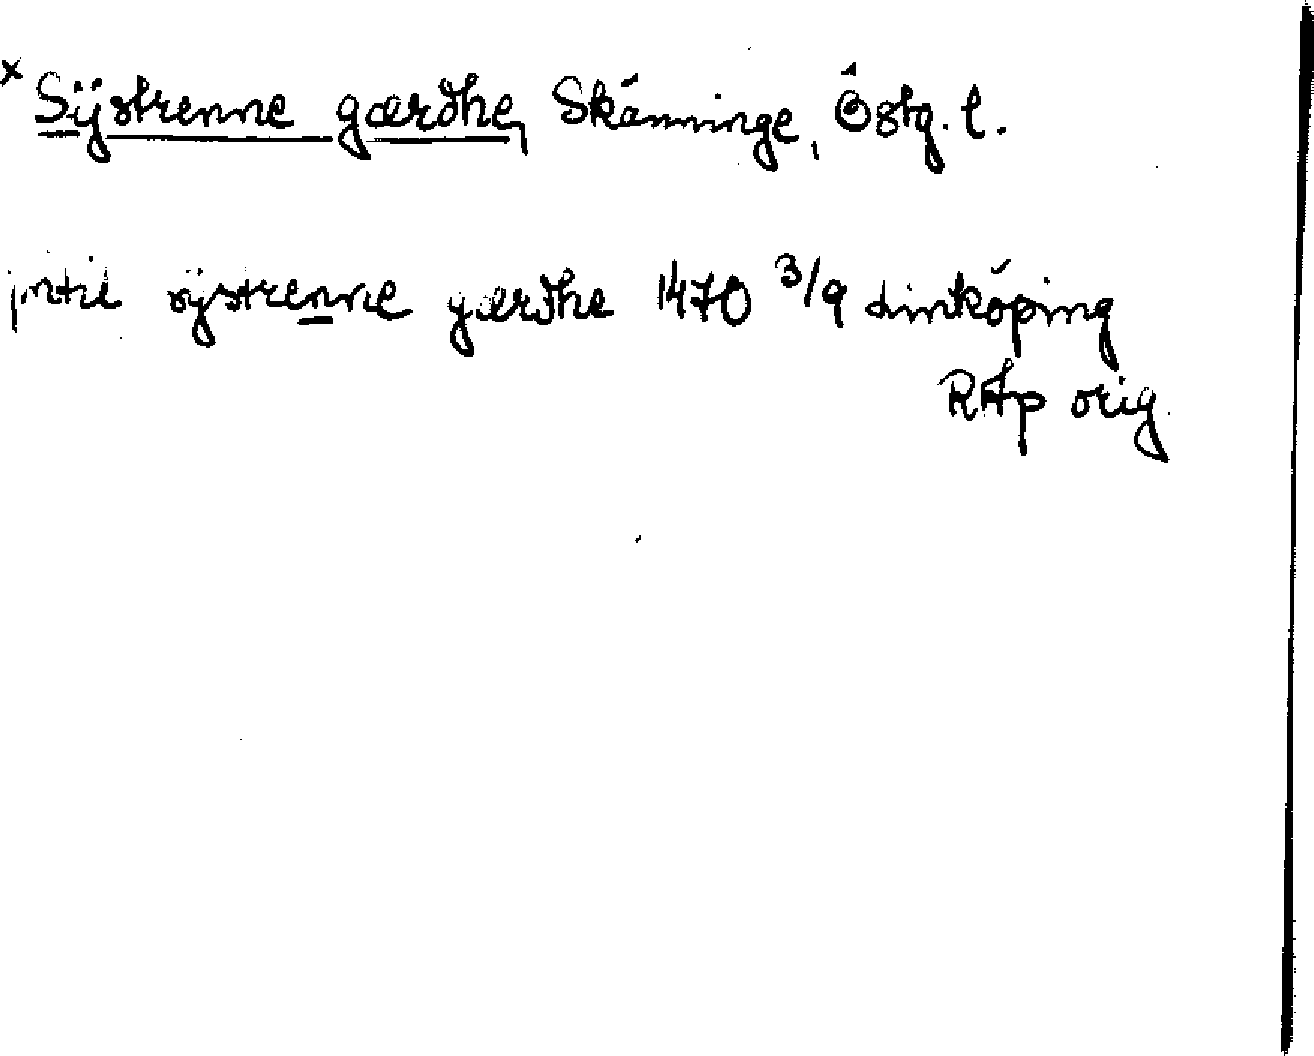 × Sÿstrenne gærdhe, Skänninge, Östg. l.
jntil sÿstrenne gærdhe 1470 3/9 Linköping
RAp orig.